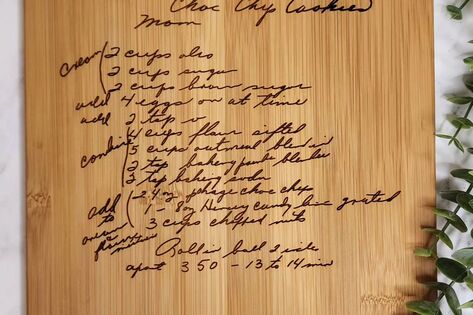 Choc Chip Cookies
Mom
cream 2 cups oleo
2 cups sugar
2 cups brown sugar
add 4 eggs on at time
add 2 tsp v
combine 4 cups flour sifted
5 cups oatmeal blended
2 tsp baking powder
2 tsp baking soda
add to cream mixture
2 - 24 oz package choc chip
1 - 8 oz Hersey candy bar grated
3 cups chopped nuts
Roll in ball 2 inch
apart 350 - 13 to 14 min